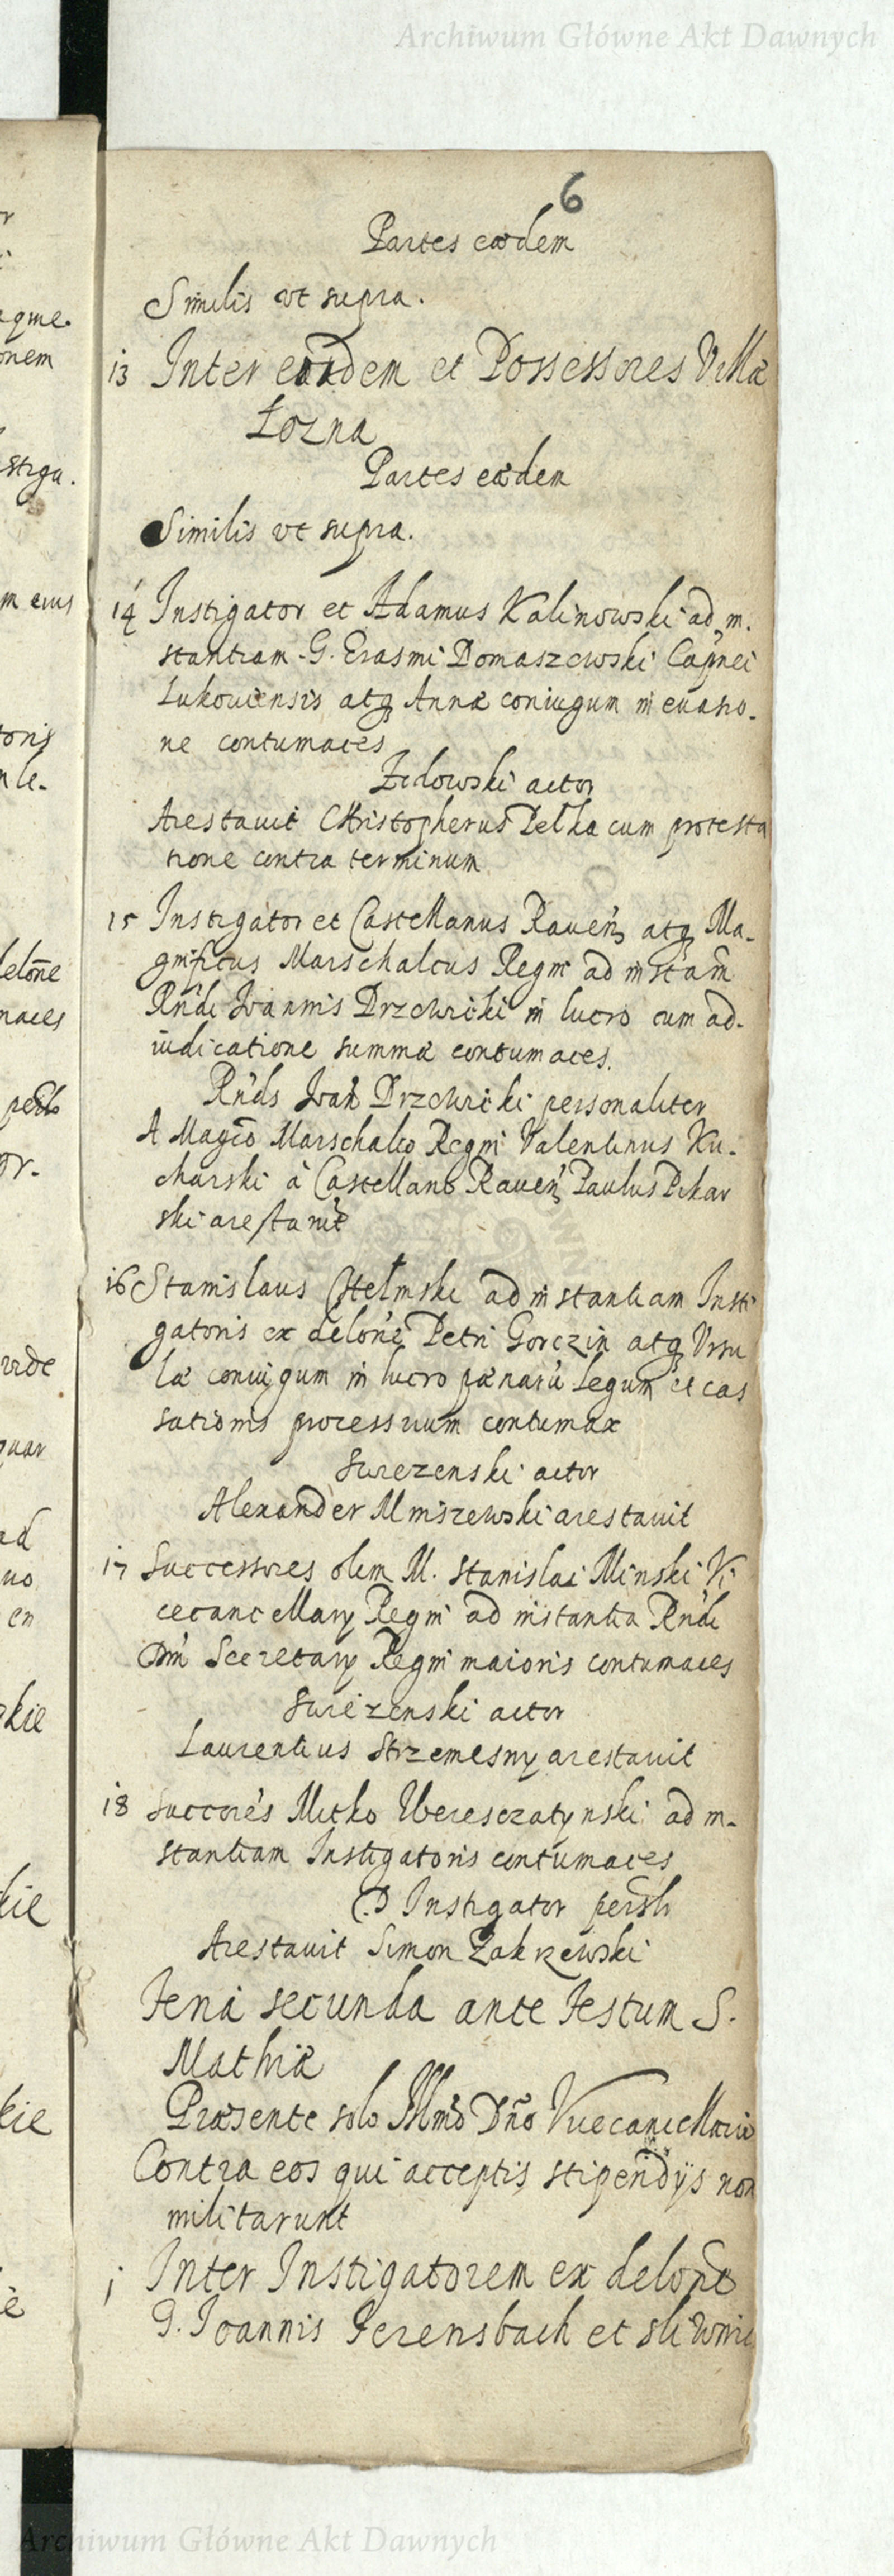 Archiwum Główne Akt Dawnych
6
Partes eædem
Similis vt supra.
13 Inter eosdem et Possessores Villæ
Łozna
Partes eædem
Similis vt supra.
14 Instigator et Adamus Kalinowski ad in-
stantiam G. Erasmi Domaszewski Capnei
Lukouiensis atq Annæ coniugum in euasio-
ne contumaces
Zidowski actor
Arestauit Christopherus Pelka cum protesta
tione contra terminum
15 Instigator et Castellanus Raueñ atq Ma-
gnificus Marschalcus Regni ad instam
Rndi Ioannis Drzewicki in lucro cum ad-
iudicatione summæ contumaces.
Rnds Ioan Drzewicki personaliter
A Magco Marschalco Regni Valentinus Ku-
charski à Castellano Raueñ Paulus Pekar
ski arestauit
16 Stanislaus Chelmski ad instantiam Insti
gatoris ex delone Petri Gorczin atq Vrsu
læ coniugum in lucro pænarū legum et cas
sationis processuum contumax
Swiezenski actor
Alexander Mniszewski arestauit
17 Successores olim M. Stanislai Minski Vi
cecancellarij Regni ad instantia Rndi
Dni Secretarij Regni maioris contumaces
Swiezenski actor
Laurentius Strzemesny arestauit
18 Succores Mitko Weresczatynski ad in-
stantiam Instigatoris contumaces
D Instigator persh
Arestauit Simon Zakrzewski
Feria secunda ante Festum S.
Mathiæ
Præsente solo Illmo Dño Vicecancellario
Contra eos qui acceptis stipendijs non
militarunt
1 Inter Instigatorem ex delone
G. Ioannis Ferensbach et
Archiwum Główne Akt Dawnych